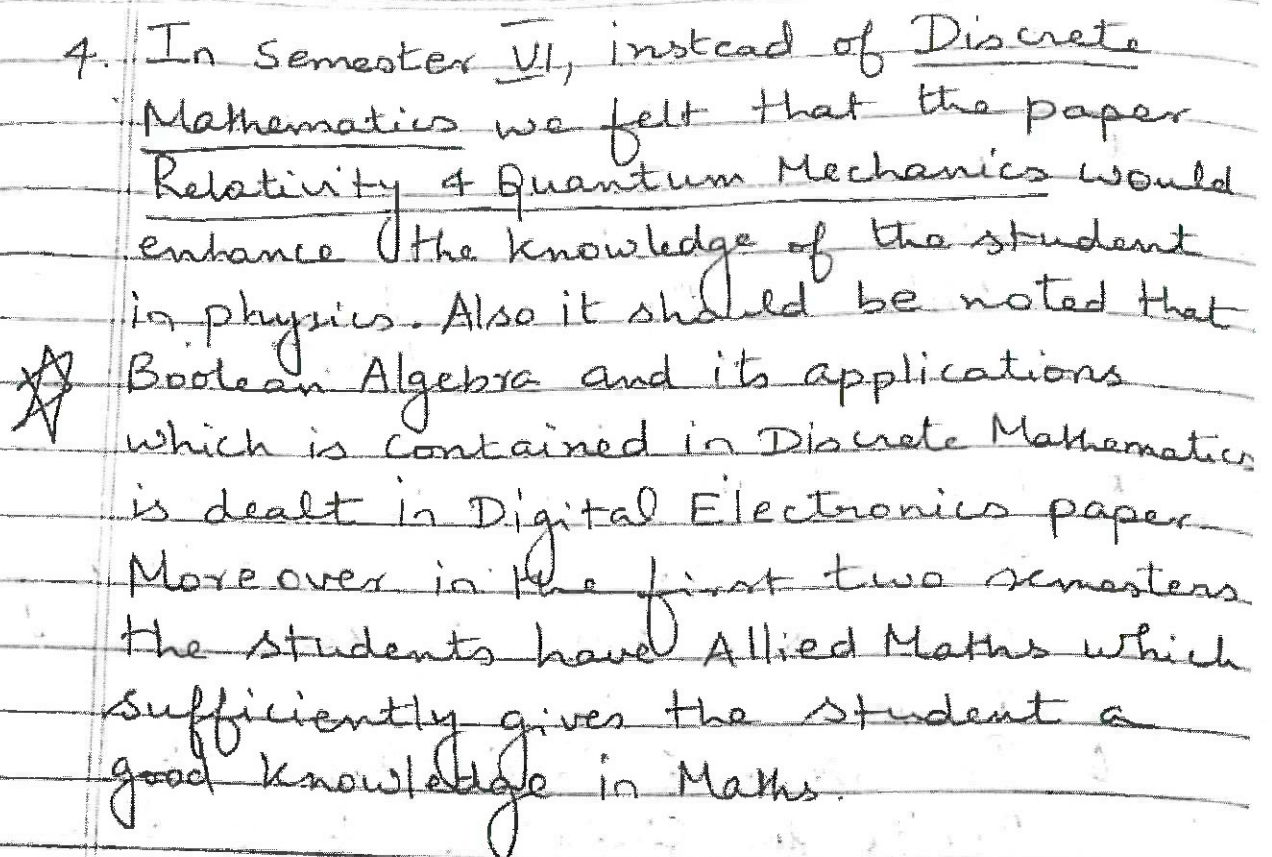 4. In Semester VI, instead of Discrete
Mathematics we felt that the paper
Relativity & Quantum Mechanics would
enhance the knowledge of the student
in physics. Also it should be noted that
Boolean Algebra and its applications
which is contained in Discrete Mathematics
is dealt in Digital Electronics paper.
Moreover in the first two semesters
the students have Allied Maths which
sufficiently gives the student a
good knowledge in Maths.